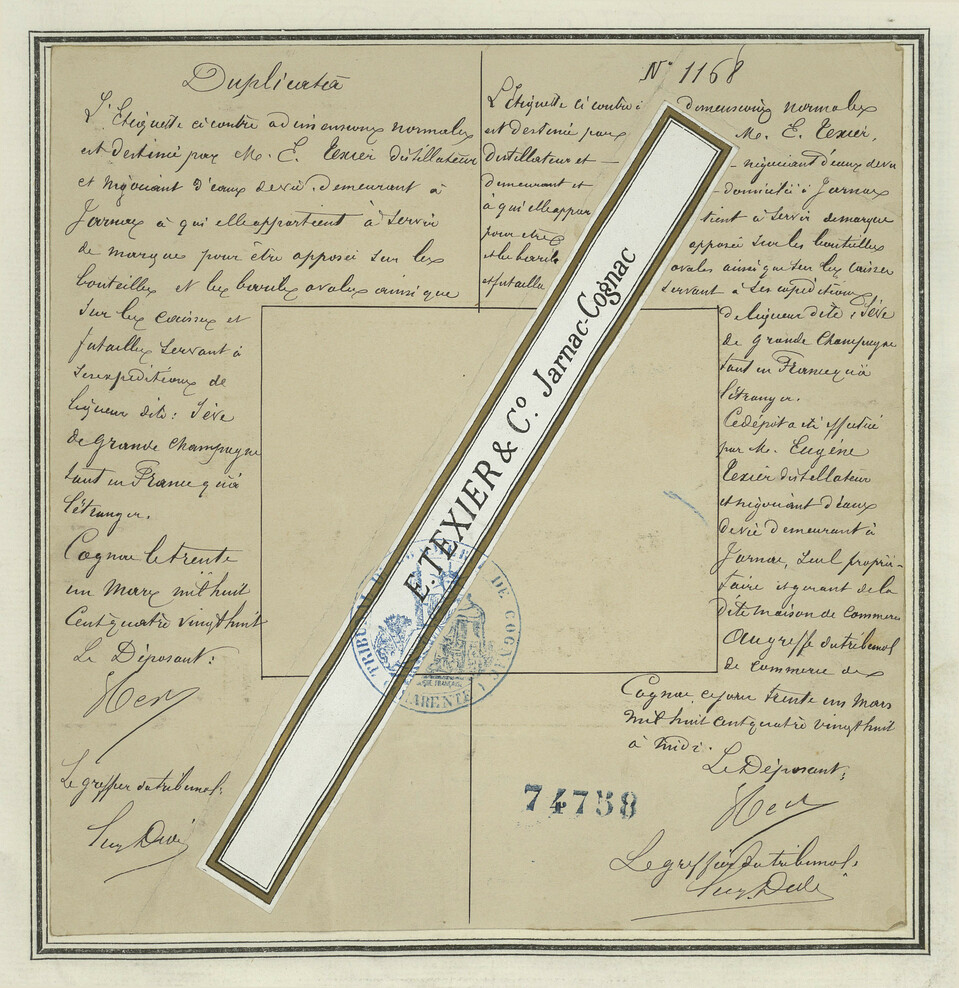 Duplicata
L'étiquette ci contre a dimensions normales
est destinée par M. E. Texier distillateur
et négociant d'eaux de vie demeurant à
Jarnac à qui elle appartient à servir
de marque pour être apposée sur les
bouteilles et les barils ovales ainsi que
sur les caisses et
futailles servant à
ses expéditions de
liqueur dite: Sève
de grande champagne
tant en France qu'à
l'étranger.
Cognac le trente
un Mars mil huit
Cent quatre vingt huit
Le Déposant:
Le greffier du tribunal:
No 1168
L'étiquette ci contre à dimensions normales
est destinée par M. E. Texier,
distillateur et négociant d'eaux de vie
demeurant et domicilié à Jarnac
à qui elle appartient à servir de marque
pour être apposée sur les bouteilles
et les barils ovales ainsi que sur les caisses
et futailles servant à ses expéditions
de liqueur dite: Sève
de grande Champagne
tant en France qu'à
l'étranger.
Ce dépôt a été effectué
par M. Eugène
Texier distillateur
et négociant d'eaux
de vie demeurant à
Jarnac, seul proprié-
taire et gérant de la
dite maison de commerce
au greffe du tribunal
de commerce de
Cognac ce jour trente un Mars
mil huit cent quatre vingt huit
à midi.
Le Déposant:
Le greffier du tribunal:
E. TEXIER & Co. Jarnac-Cognac
DE COGNAC
74758